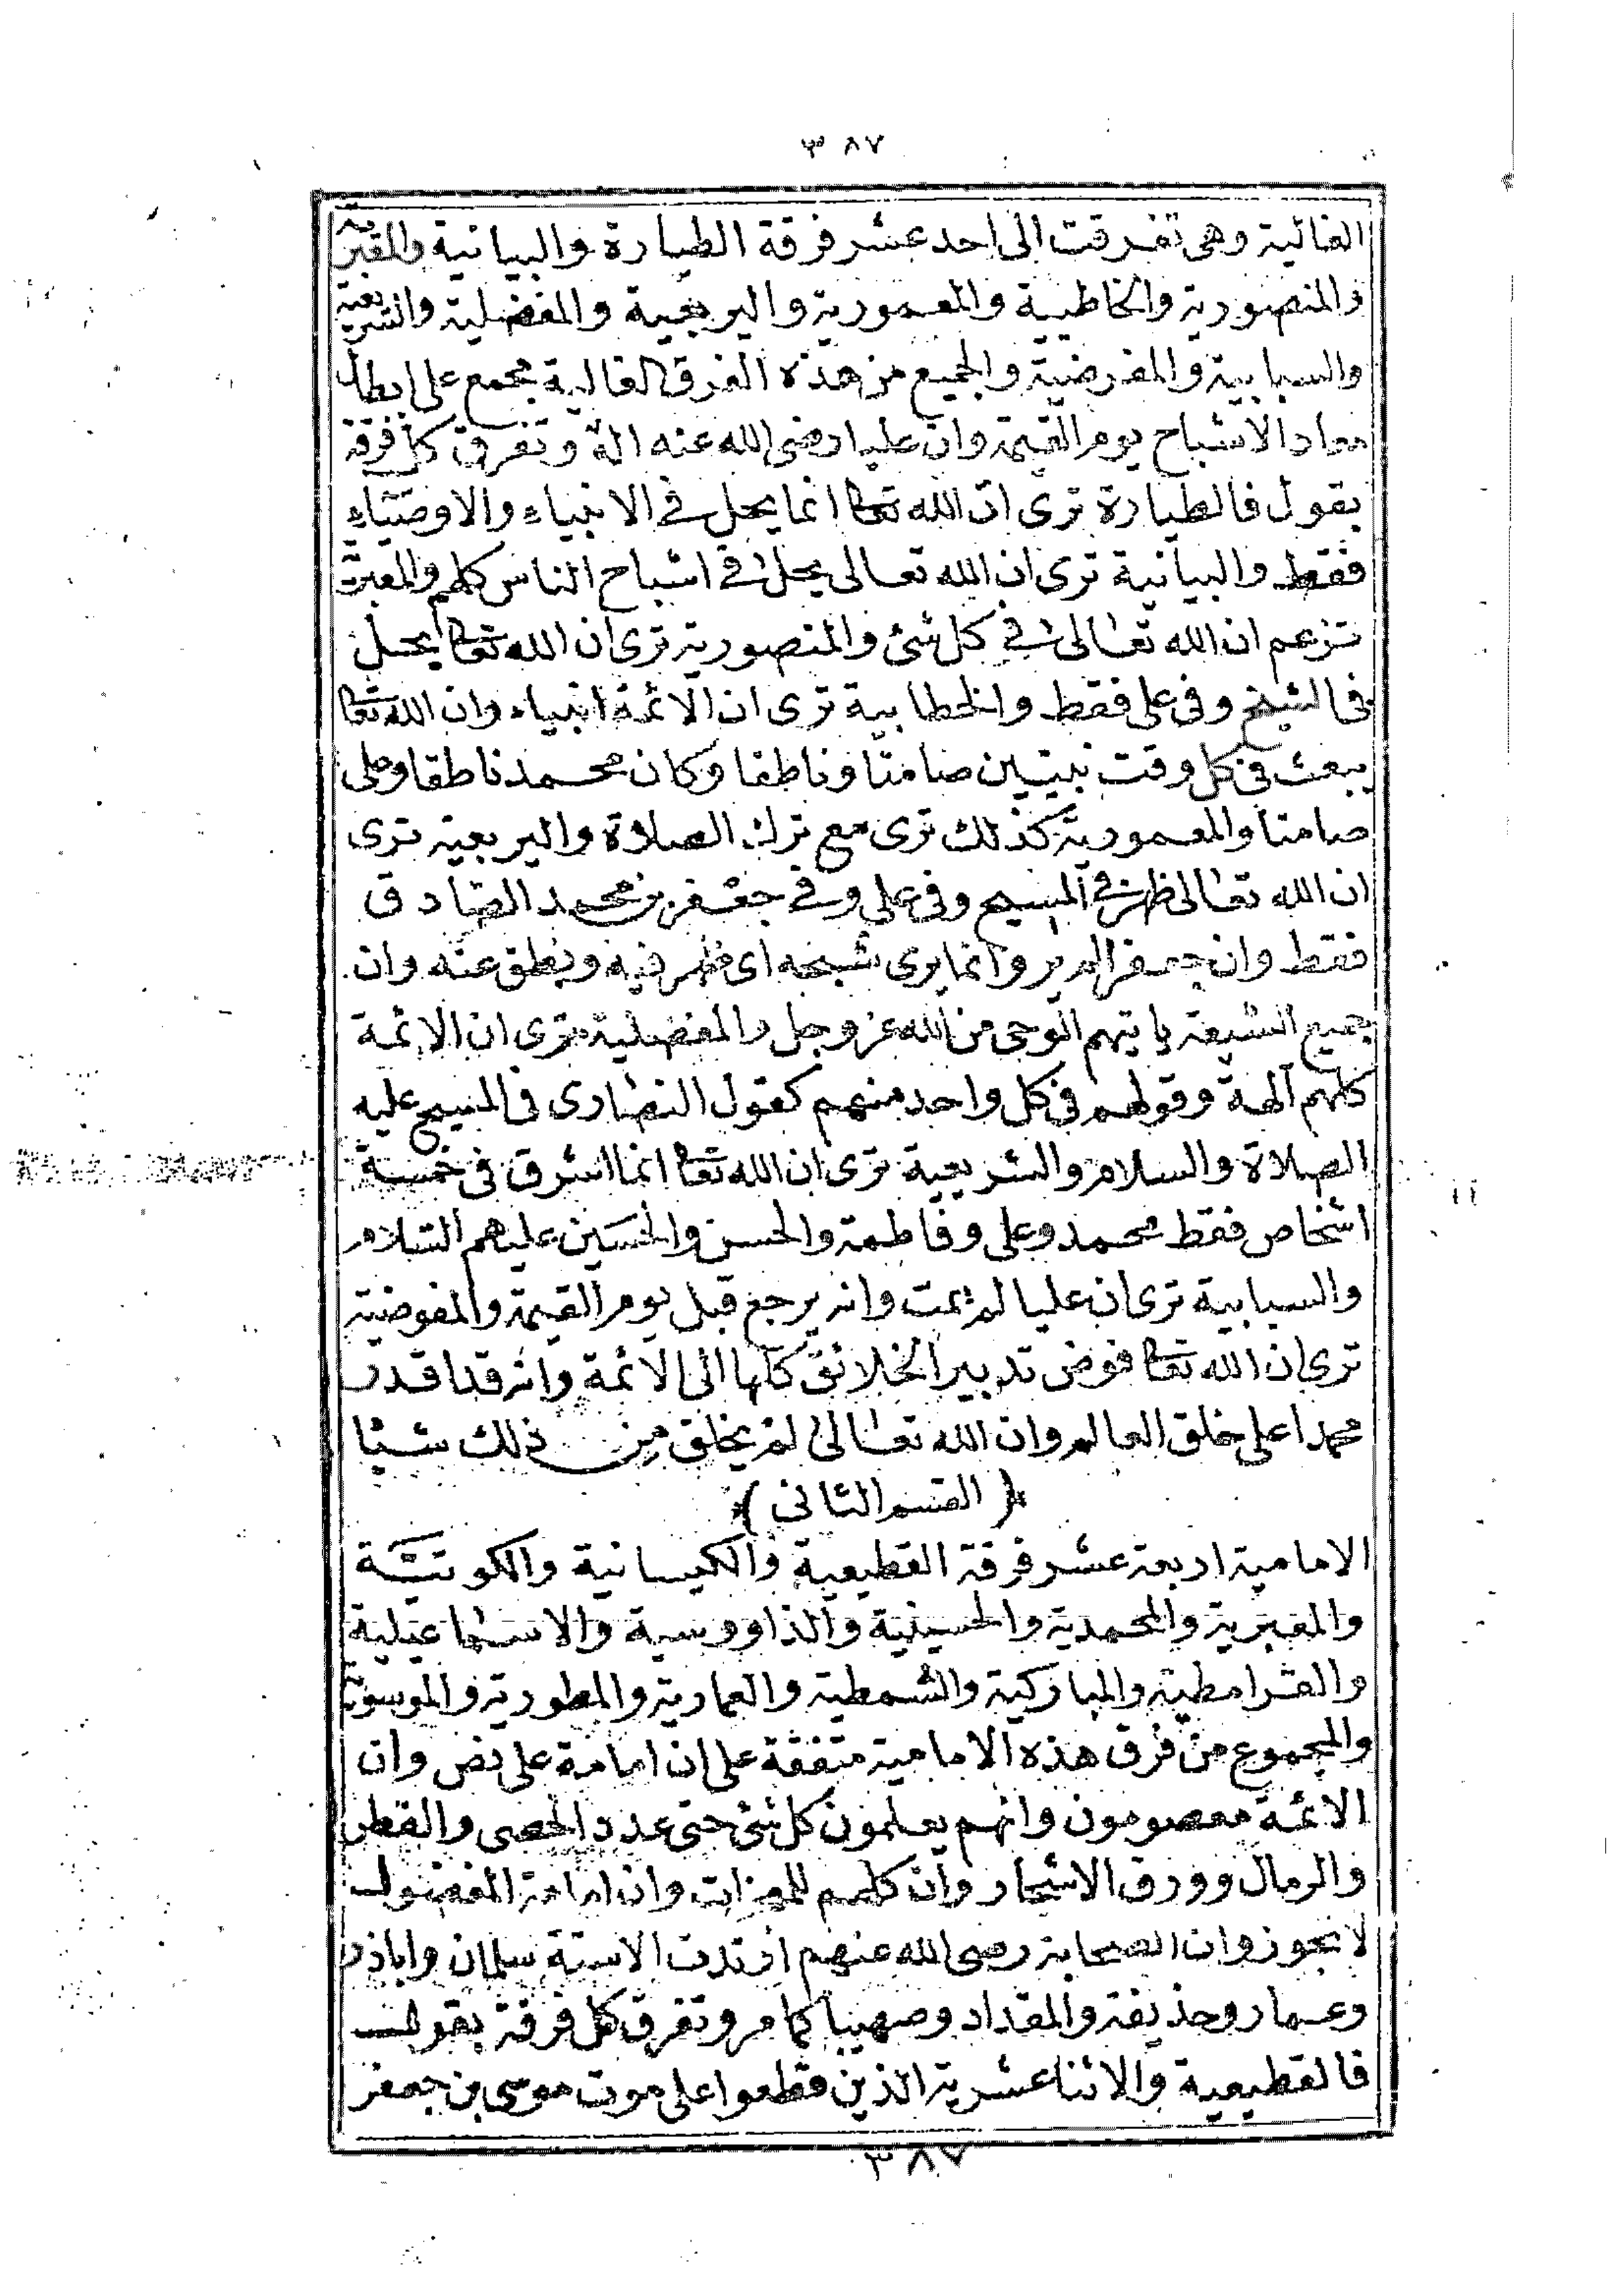 ٣٨٧
الغالية وهى تفرقت الى احد عشر فرقة الطيارة والبيانية والمغيرية
والمنصورية والخاطبية والمعمورية والبربعية والمفضلية والشريعية
والسبابية والمفرضية والجميع من هذه الفرق الغالية مجمع على ابطال
معاد الاشباح يوم القيمة وان عليا رضى الله عنه اله وتفرق كل فرقة
بقول فالطيارة ترى ان الله تعا انما يحل فى الانبياء والاوصياء
فقط والبيانية ترى ان الله تعالى يحل فى اشباح الناس كلهم والمغيرية
تزعم ان الله تعالى فى كل شئ والمنصورية ترى ان الله تعا يحل
فى الشيخ وفى على فقط والخطابية ترى ان الائمة انبياء وان الله تعا
يبعث فى كل وقت نبيين صامتا وناطقا وكان محمد ناطقا وعلى
صامتا والمعمورية كذلك ترى مع ترك الصلاة والبربعية ترى
ان الله تعالى ظهر فى المسيح وفى على وفى جعفر بن محمد الصادق
فقط وان جعفر الم ير وانما يرى شبحه اى ظهر فيه ونطق عنه وان
جميع الشيعة ياتيهم الوحى من الله عز وجل والمفضلية ترى ان الائمة
كلهم آلهة وقولهم فى كل واحد منهم كقول النصارى فى المسيح عليه
الصلاة والسلام والشريعية ترى ان الله تعا انما اشرق فى خمسة
اشخاص فقط محمد وعلى وفاطمة والحسن والحسين عليهم السلام
والسبابية ترى ان عليا لم يمت وانه يرجع قبل يوم القيمة والمفوضية
ترى ان الله تعا فوض تدبير الخلائق كلها الى الائمة وانه قد اقدر
محمدا على خلق العالم وان الله تعالى لم يخلق من ذلك شيئا
﴿ القسم الثانى ﴾
الامامية اربعة عشر فرقة القطيعية والكيسانية والكو
والمغيرية والمحمدية والحسينية والناووسية والاسماعيلية
والقرامطية والمباركية والشمطية والعمارية والمطورية والموسوية
والمجموع من فرق هذه الامامية متفقة على ان امامة على نص وان
الائمة معصومون وانهم يعلمون كل شئ حتى عدد الحصى والقطر
والرمال وورق الاشجار وان كلهم للمعجزات وان امامة المفضول
لا تجوز وان الصحابة رضى الله عنهم ارتدت الا ستة سلمان واباذر
وعمار وحذيفة والمقداد وصهيبا كما مر وتفرق كل فرقة بقول
فالقطيعية والاثنا عشرية الذين قطعوا على موت موسى بن جعفر
٣٨٧